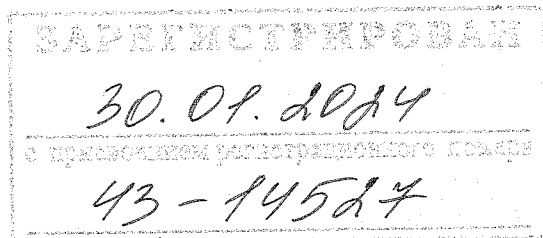 ЗАРЕГИСТРИРОВАН
30.01.2024
с присвоением регистрационного номера
43-14527